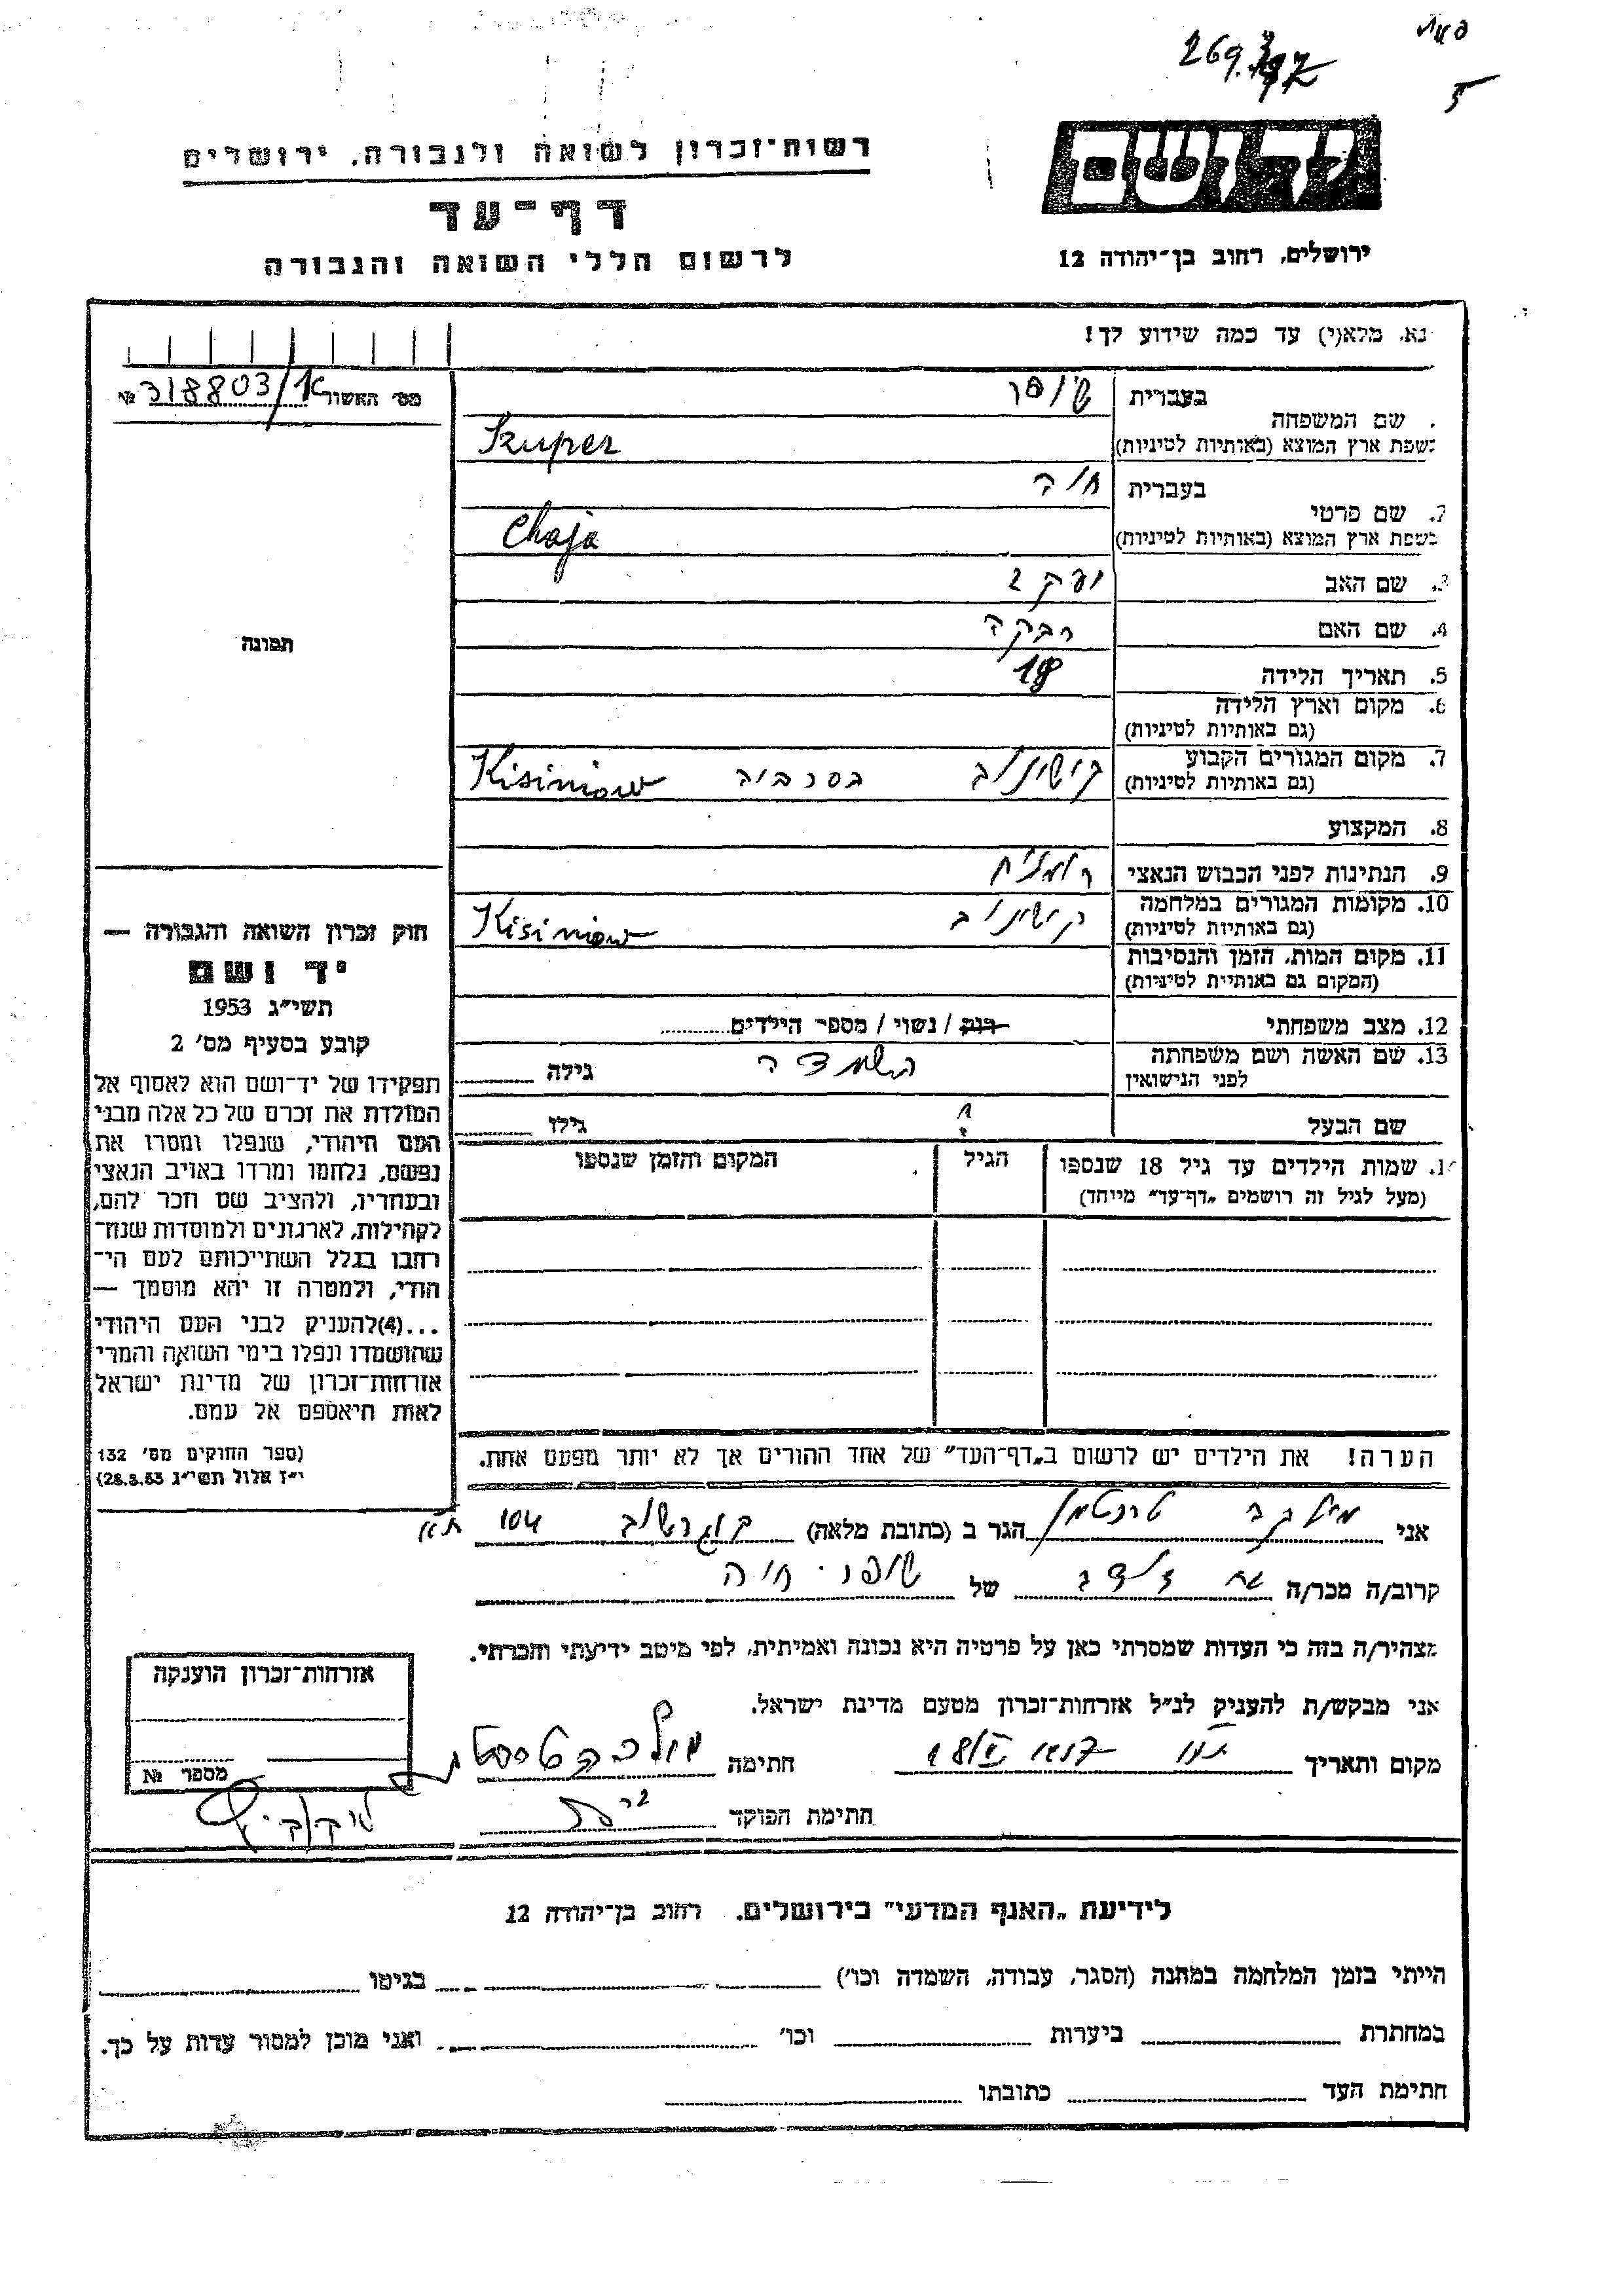 269.
5
רשות־זכרון לשואה ולגבורה, ירושלים
ידושם
דף־עד
לרשום חללי השואה והגבורה
ירושלים, רחוב בן־יהודה 12
נא, מלא(י) עד כמה שידוע לך!
מס׳ האשור 318803/1 №
בעברית
שם המשפחה
בשפת ארץ המוצא (באותיות לטיניות)
Szuper
שופר
בעברית חיה
2. שם פרטי
בשפת ארץ המוצא (באותיות לטיניות)
Chaja
3. שם האב יעקב
4. שם האם רבקה
תמונה
5. תאריך הלידה 18
6. מקום וארץ הלידה
(גם באותיות לטיניות)
7. מקום המגורים הקבוע
(גם באותיות לטיניות)
קישינוב בסרביה Kisiniow
8. המקצוע
9. הנתינות לפני הכבוש הנאצי רומנית
10. מקומות המגורים במלחמה
(גם באותיות לטיניות)
קישינוב Kisiniow
11. מקום המות, הזמן והנסיבות
(המקום גם באותיית לטיניות)
12. מצב משפחתי רוק / נשוי / מספר הילדים
13. שם האשה ושם משפחתה
לפני הנישואין
גילה
שם הבעל ? גילו
14. שמות הילדים עד גיל 18 שנספו
(מעל לגיל זה רושמים „דף־עד״ מיוחד)
הגיל
המקום והזמן שנספו
חוק זכרון השואה והגבורה —
יד ושם
תשי״ג 1953
קובע בסעיף מס׳ 2
תפקידו של יד־ושם הוא לאסוף אל
המולדת את זכרם של כל אלה מבני
העם היהודי, שנפלו ומסרו את
נפשם, נלחמו ומרדו באויב הנאצי
ובעוזריו, ולהציב שם וזכר להם,
לקהילות, לארגונים ולמוסדות שנח־
רבו בגלל השתייכותם לעם הי־
הודי, ולמטרה זו יהא מוסמך —
...(4)להעניק לבני העם היהודי
שהושמדו ונפלו בימי השואה והמרי
אזרחות־זכרון של מדינת ישראל
לאות היאספם אל עמם.
(ספר החוקים מס׳ 132
י״ז אלול תשי״ג 28.8.53)
הערה! את הילדים יש לרשום ב„דף־העד״ של אחד ההורים אך לא יותר מפעם אחת.
אני מלכה הגר ב (כתובת מלאה) בוגרשוב 104 ת״א
קרוב/ה מכר/ה של שופר חיה
מצהיר/ה בזה כי העדות שמסרתי כאן על פרטיה היא נכונה ואמיתית, לפי מיטב ידיעתי והכרתי.
אני מבקש/ת להעניק לנ״ל אזרחות־זכרון מטעם מדינת ישראל.
מקום ותאריך
חתימה מלכה
חתימת הפוקד
אזרחות־זכרון הוענקה
מספר №
לידיעת „האגף המדעי״ בירושלים. רחוב בן־יהודה 12
הייתי בזמן המלחמה במחנה (הסגר, עבודה, השמדה וכו׳) בגיטו
במחתרת ביערות וכו׳ ואני מוכן למסור עדות על כך.
חתימת העד כתובתו